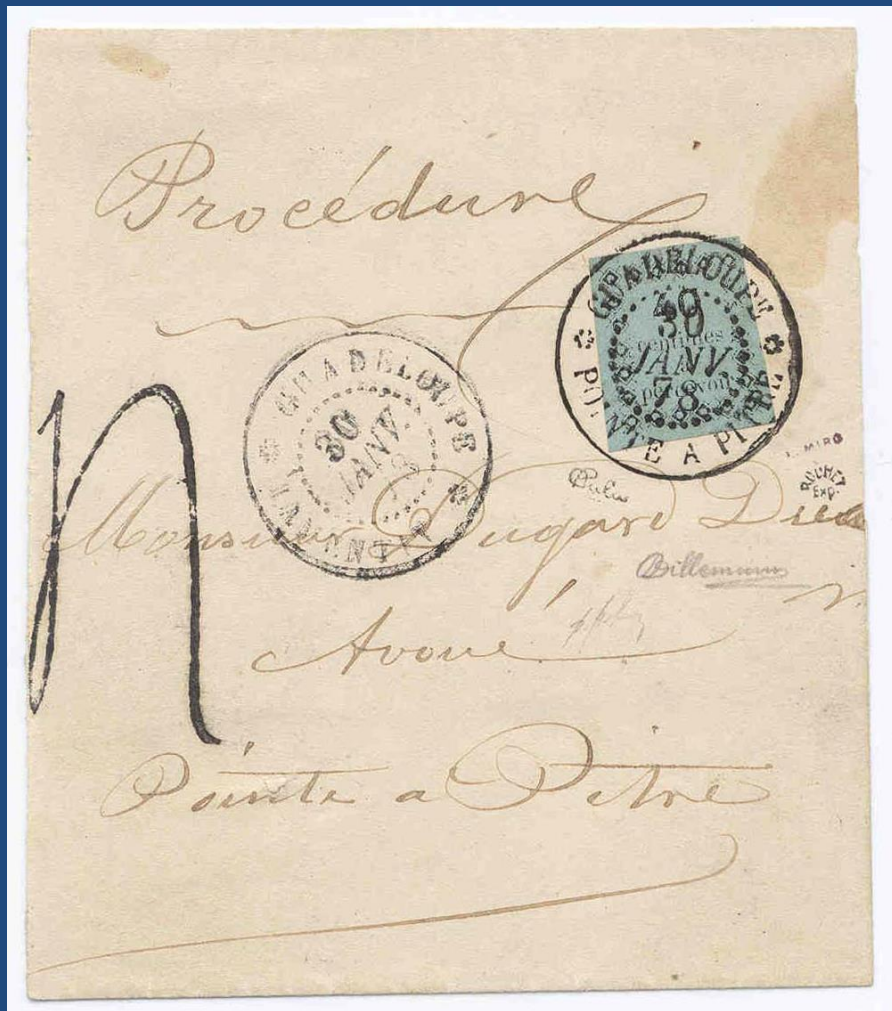 Procédure
GUADELOUPE
30
JANV
78
POINTE A PITRE
40
centimes
à percevoir
GUADELOUPE
30
JANV.
78
n
Monsieur Dugard
ROCHET
EXP.
MIRO
Avoué
Pointe a Pitre